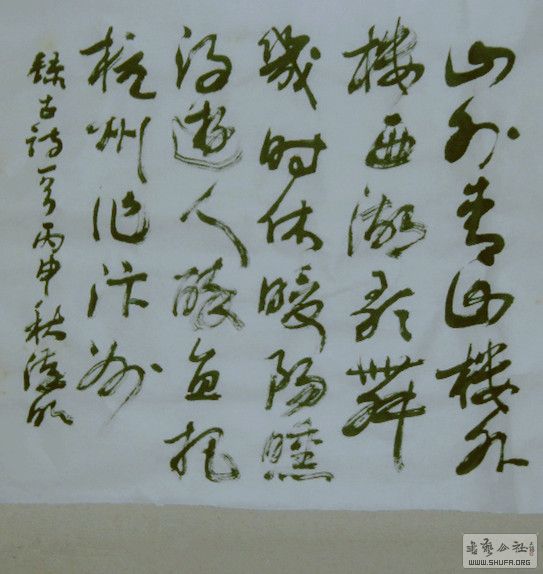 山外青山楼外
楼西湖歌舞
幾时休暖陽曛
得遊人醉直把
杭州作汴州
録古詩一首丙申秋
書藝公社
WWW.SHUFA.ORG